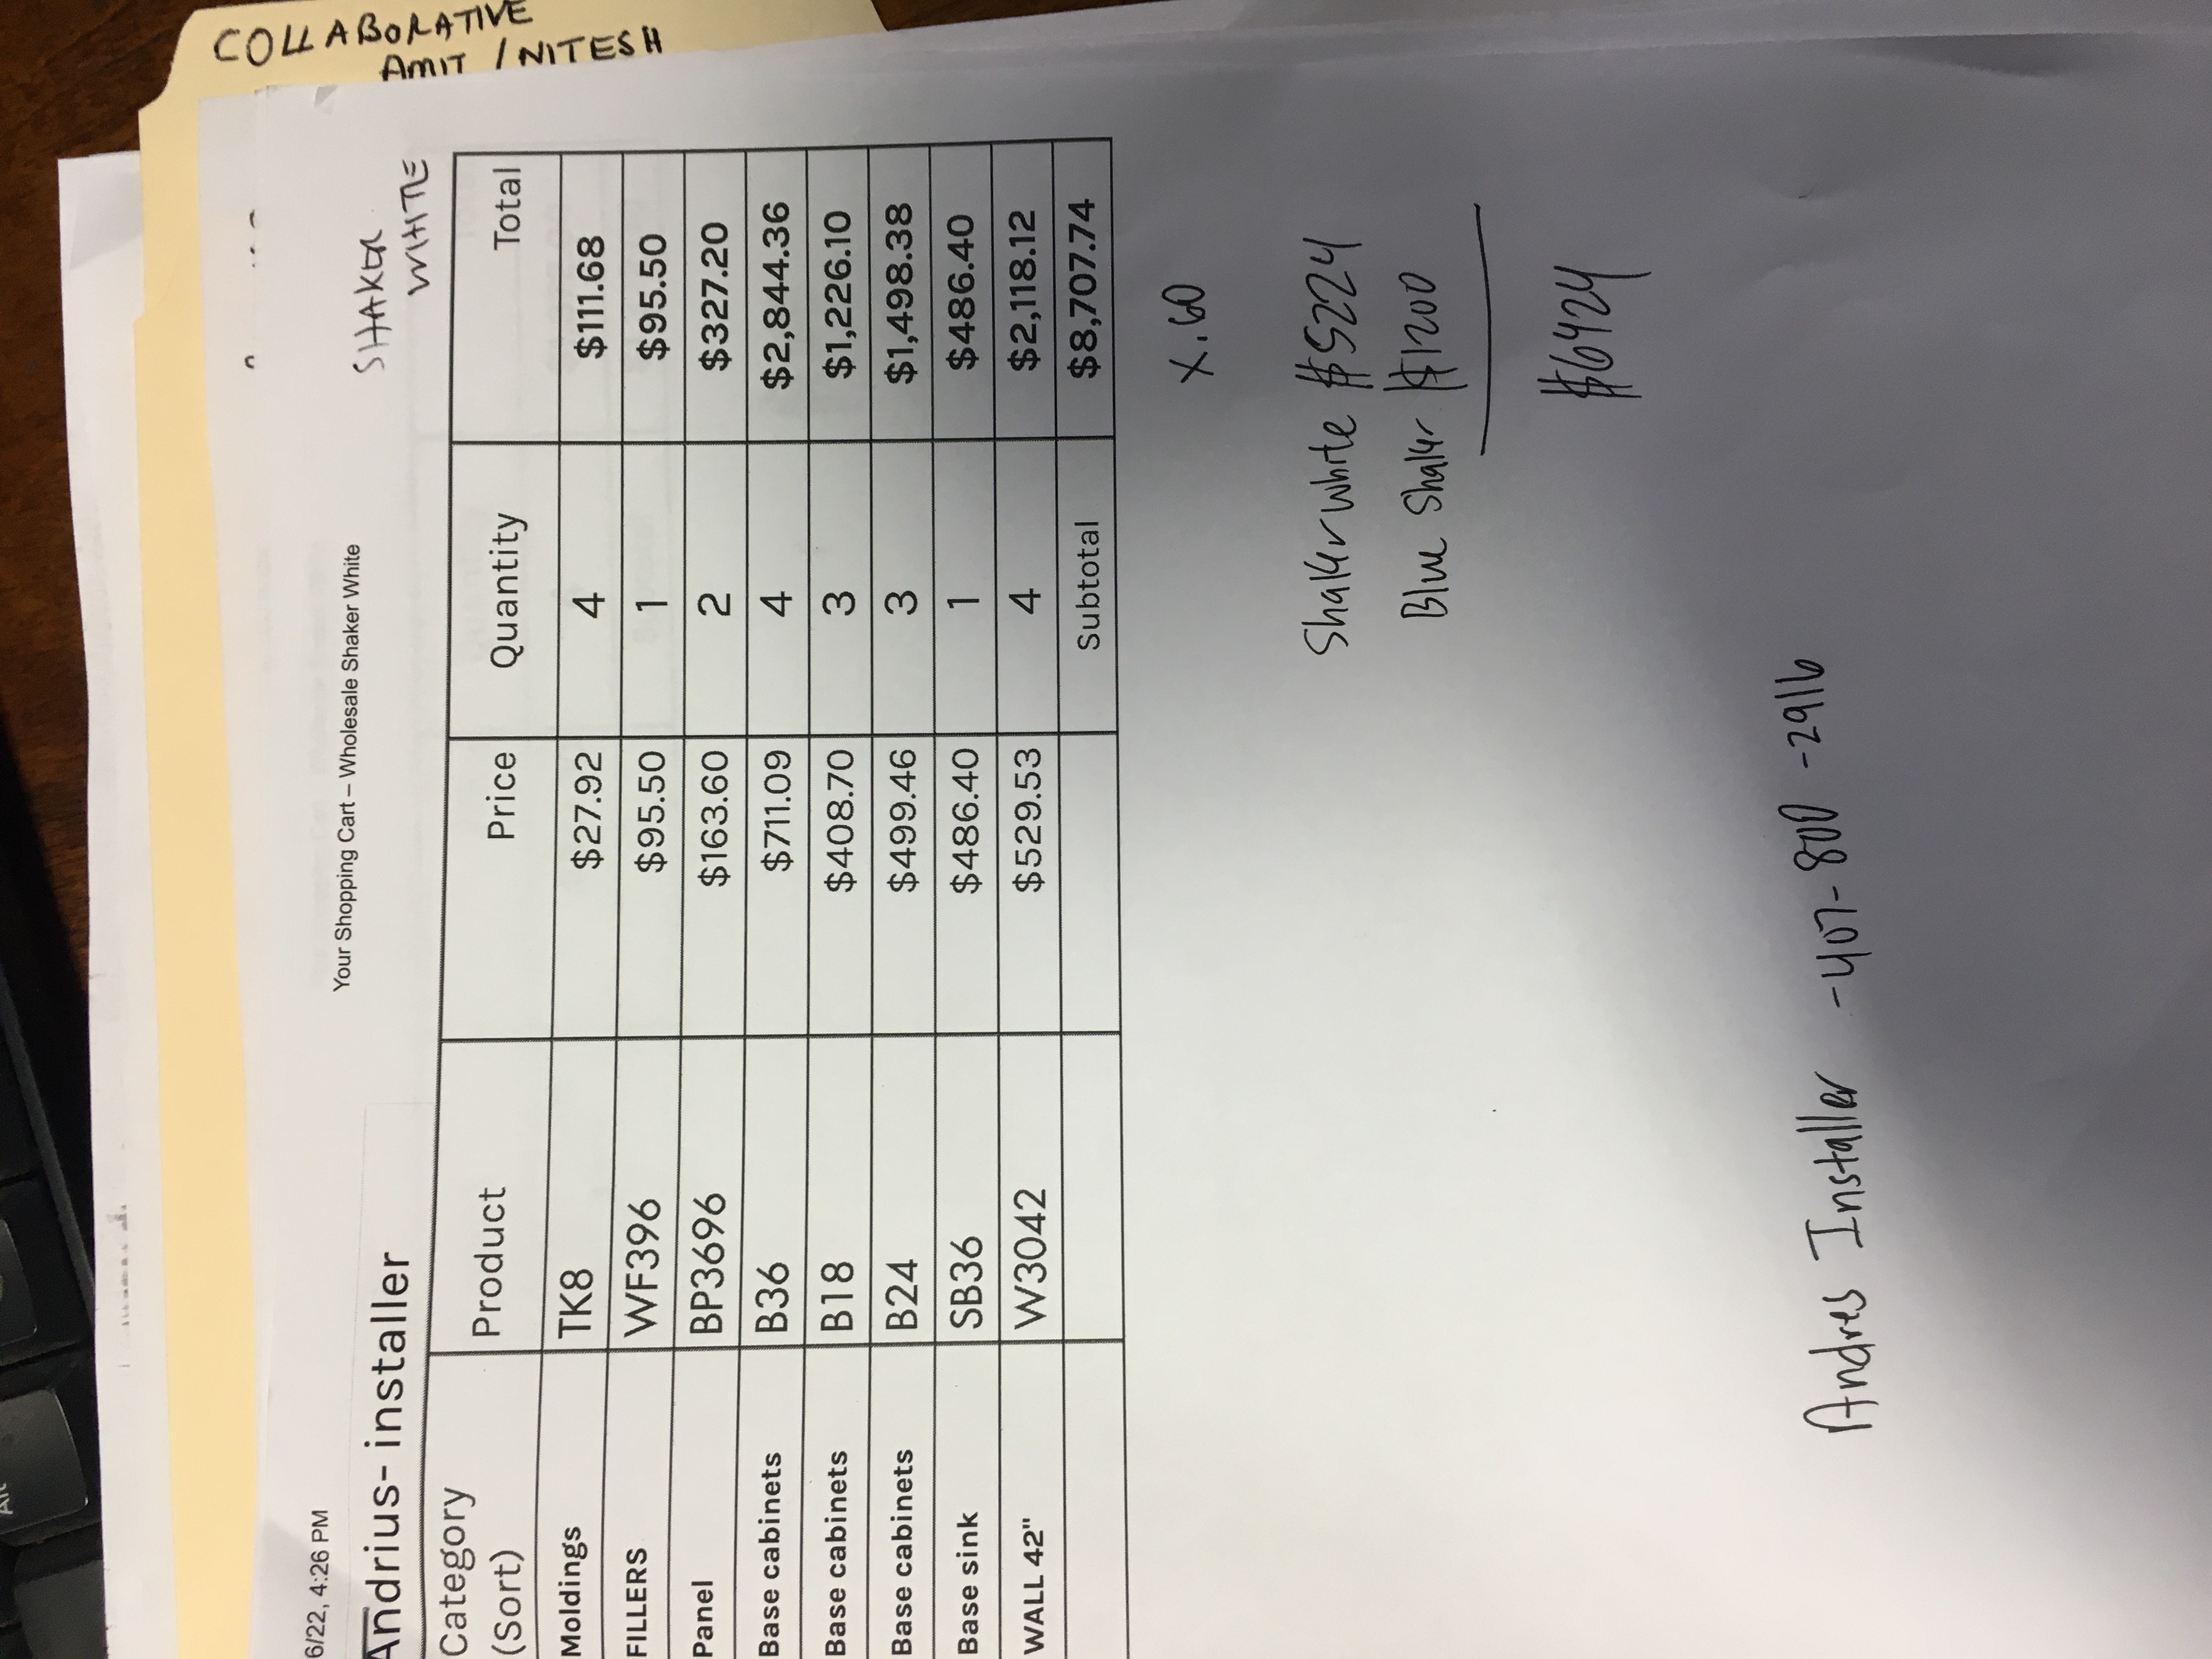 COLLABORATIVE
AMIT / NITESH
6/22, 4:26 PM
Your Shopping Cart – Wholesale Shaker White
SHAKER
WHITE
Andrius- installer
Category (Sort) Product Price Quantity Total
Moldings TK8 $27.92 4 $111.68
FILLERS WF396 $95.50 1 $95.50
Panel BP3696 $163.60 2 $327.20
Base cabinets B36 $711.09 4 $2,844.36
Base cabinets B18 $408.70 3 $1,226.10
Base cabinets B24 $499.46 3 $1,498.38
Base sink SB36 $486.40 1 $486.40
WALL 42" W3042 $529.53 4 $2,118.12
Subtotal $8,707.74
x.60
Shaker white $5224
Blue Shaker $1200
$6424
Andres Installer -407-800-2916
Alt